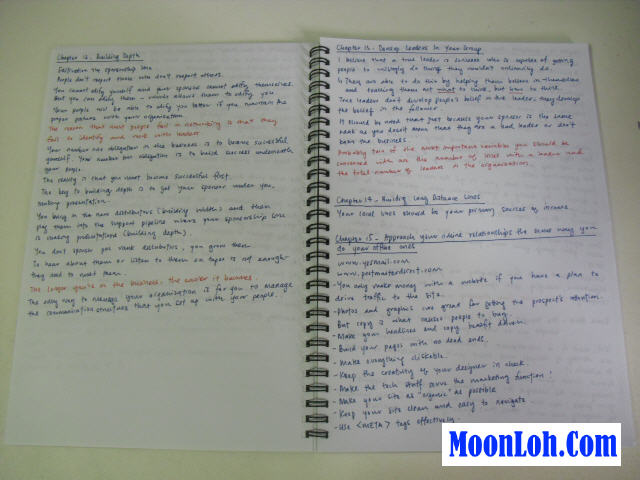 Chapter 12. Building Depth
Edification the sponsorship line
People don't respect those who don't respect others.
You cannot edify yourself and your sponsor cannot edify themselves.
But you can edify them - which allows them to edify you
Your people will be able to edify you better if you maintain the
proper posture with your organization.
The reason that most people fail in networking is that they
fail to identify and work with leaders
Your number one obligation in the business is to become successful
yourself. Your number two obligation is to build success underneath
your people.
The reality is that you must become successful first.
The key to building depth is to get your sponsor under you,
making presentation.
You bring in the new distributors (building width) and then
plug them into the support pipeline where your sponsorship line
is making presentations (building depth).
You don't sponsor you rank distributors, you grow them
To hear about them or listen to them on tapes is not enough-
they need to meet them.
The longer you're in the business, the easier it becomes.
The only way to manage your organization is for you to manage
the communication structures that you set up with your people.
Chapter 13. Develop Leaders In Your Group
I believe that a true leader is someone who is capable of getting
people to willingly do things they wouldn't ordinarily do.
They are able to do this by helping them believe in themselves
and teaching them not what to think, but how to think.
True leaders don't develop people's belief in the leader; they develop
the belief in the follower.
It should be noted that just because your sponsor is the same
rank as you doesn't mean that they are a bad leader or don't
know the business.
Probably two of the most important numbers you should be
concerned with are the number of lines with a leader and
the total number of leaders in the organization.
Chapter 14 - Building Long Distance Lines
Your local lines should be your primary sources of income.
Chapter 15 - Approach your online relationships the same way you
do your offline ones
www.yesmail.com
www.postmasterdirect.com
- You only make money with a website if you have a plan to
drive traffic to the site.
- photos and graphics are great for getting the prospect's attention.
But copy is what causes people to buy.
- Make your headlines and copy benefit driven.
- Build your pages with no dead ends.
- Make everything clickable.
- Keep the creativity of your designer in check.
- Make the tech stuff serve the marketing function!
- Make your site as "organic" as possible
- Keep your site clean and easy to navigate.
- Use <META> tags effectively.
MoonLoh.Com